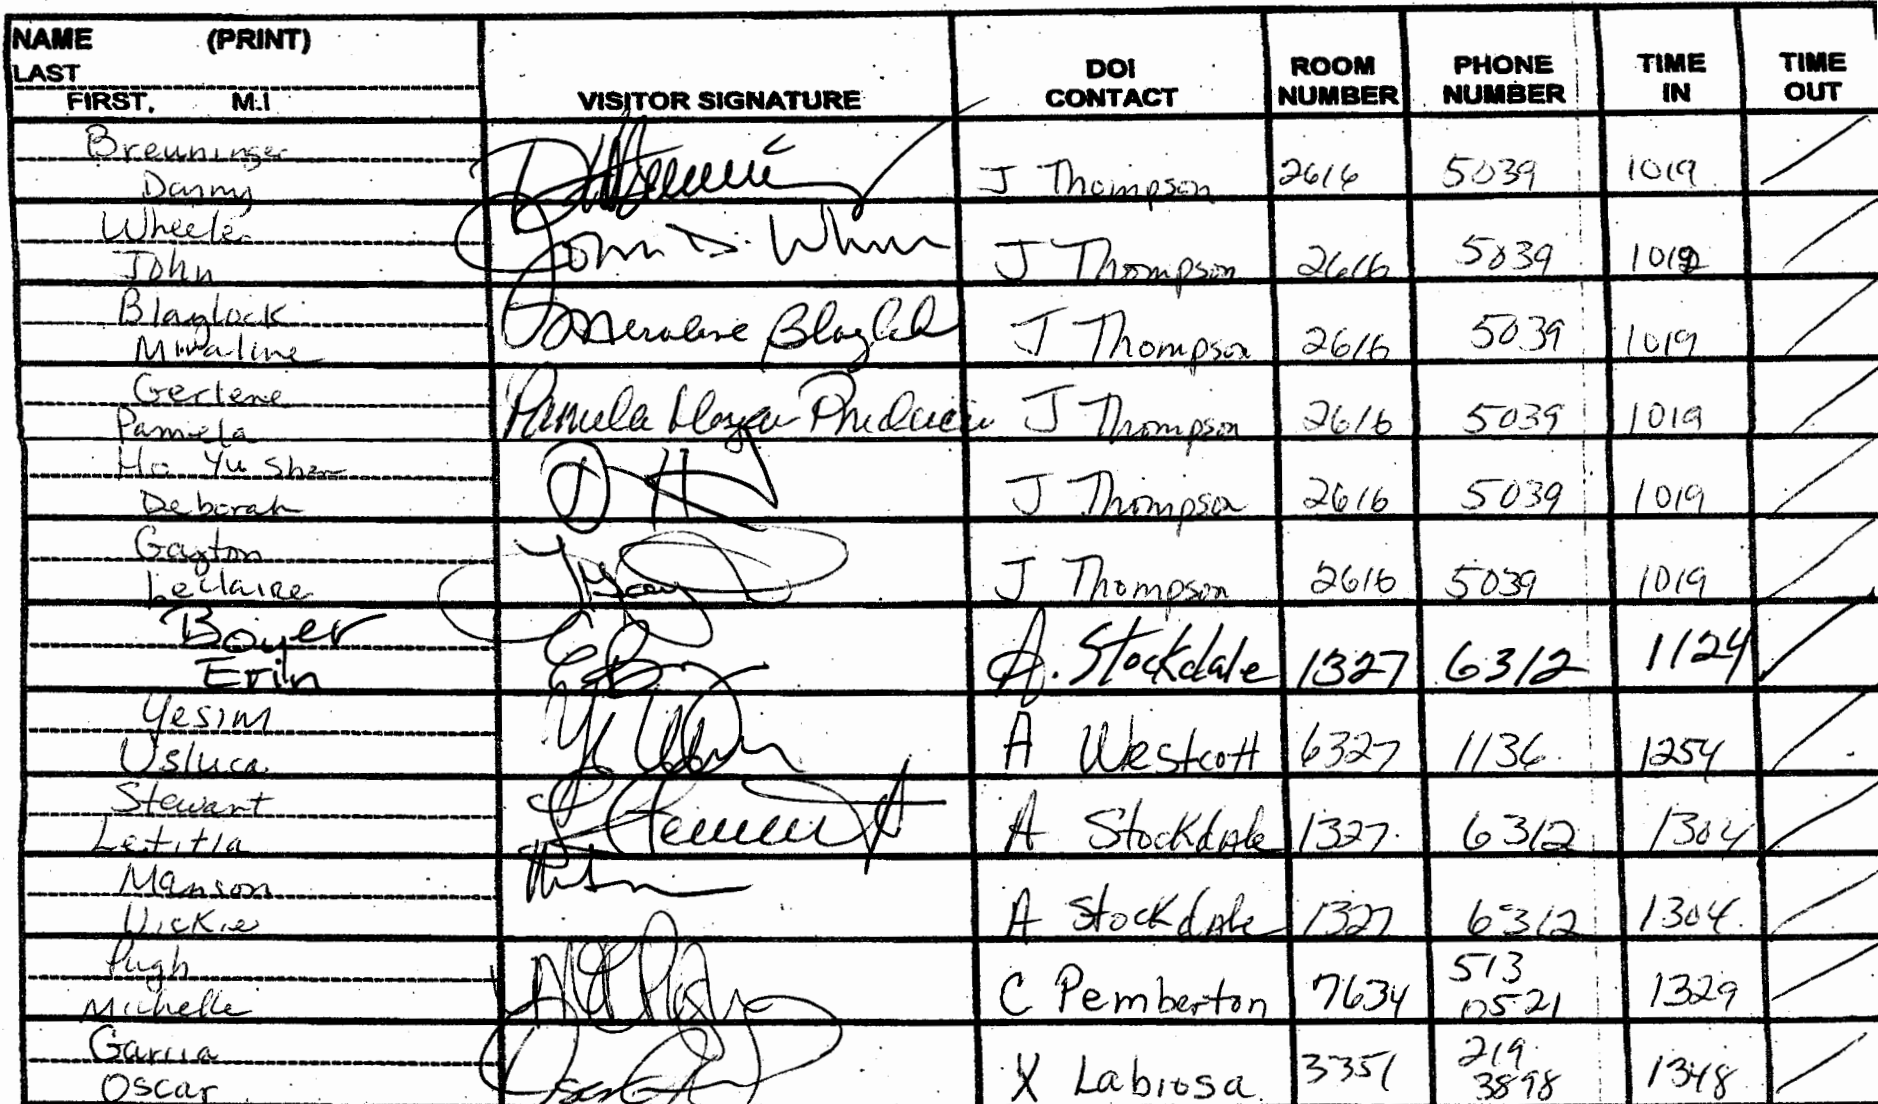 NAME (PRINT)
LAST
FIRST, M.I
VISITOR SIGNATURE
DOI CONTACT
ROOM NUMBER
PHONE NUMBER
TIME IN
TIME OUT
Breuninger
Danny J Thompson 2616 5039 1019
Wheeler
John John D. J Thompson 2616 5039
Blaylock
Miraline Blaylock J Thompson 2616 5039 1019
Gerlene
Pamela Pamela J Thompson 2616 5039 1019
Ho Yu Shan
Deborah J Thompson 2616 5039 1019
Gayton
Leclaire J Thompson 2616 5039 1019
Boyer
Erin A. Stockdale 1327 6312 1124
Yesim
Usluca A Westcott 6327 1136 1254
Stewart
Letitia A Stockdale 1327 6312 1304
Manson
Vickie A Stockdale 1327 6312 1304
Pugh 513
Michelle C Pemberton 7634 0521 1329
Garcia 219
Oscar X Labiosa 3351 3898 1348